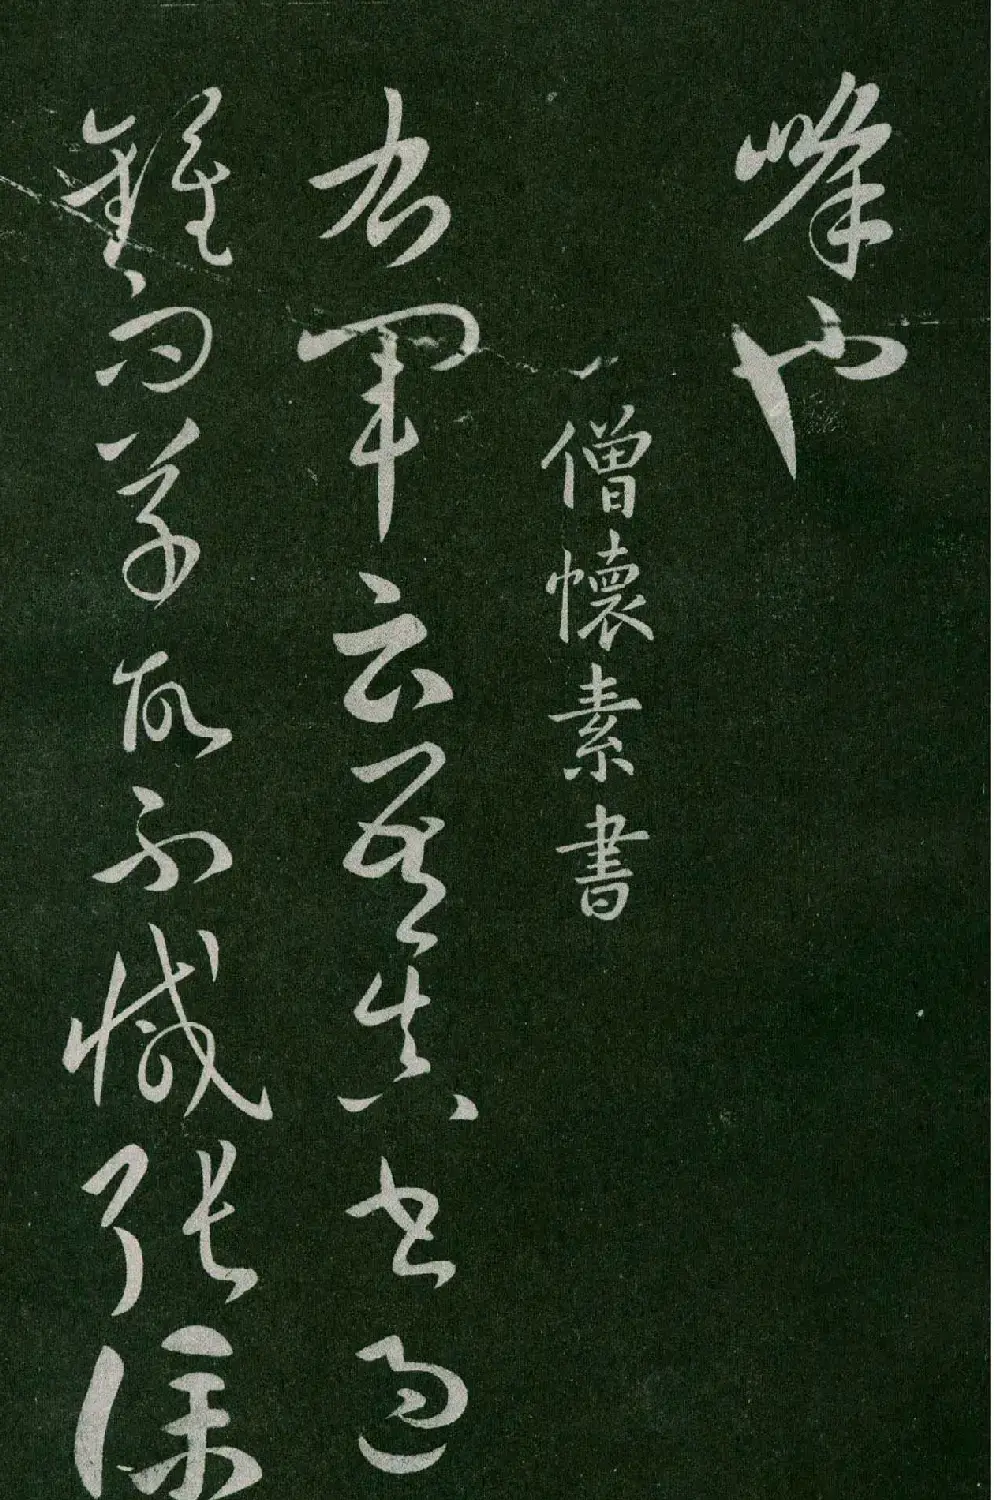 峰也
僧懷素書
右軍云吾真書過
鍾而草故不減張僕